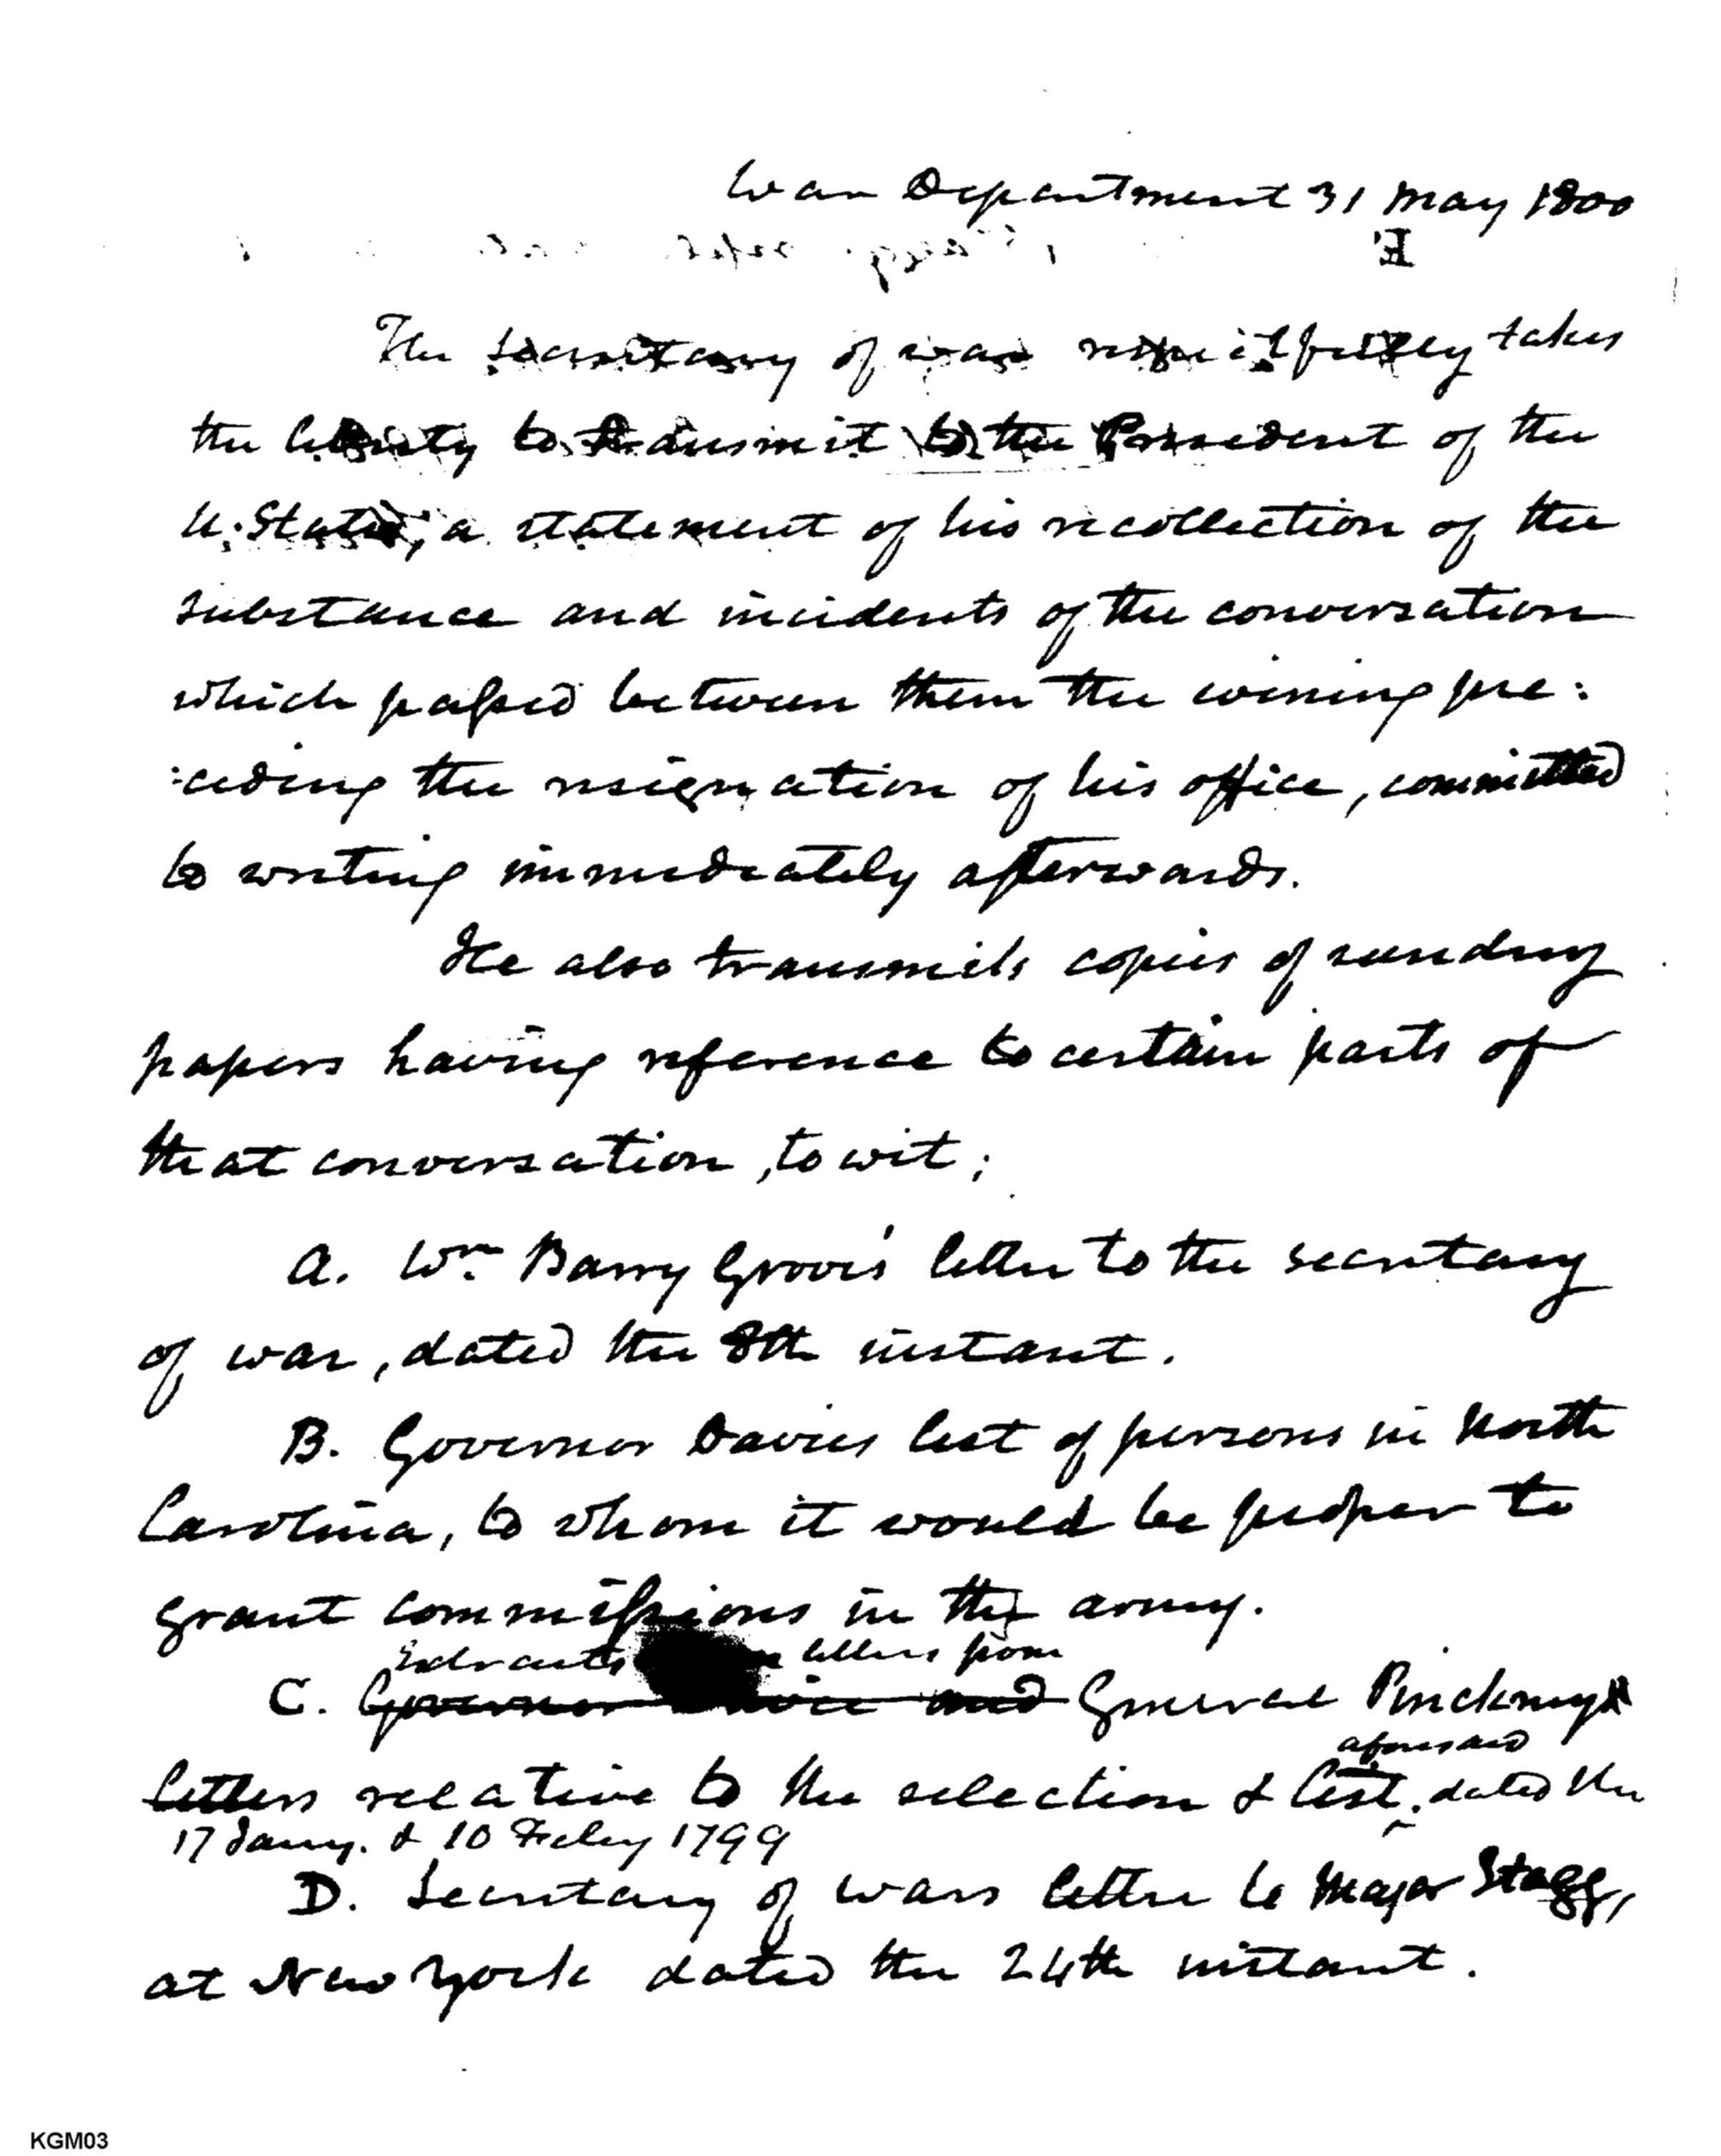 War Department 31 May 1800
The Secretary of war respectfully takes
the liberty to transmit to the President of the
U. States, a statement of his recollection of the
substance and incidents of the conversation
which passed between them the evening pre:
:ceding the resignation of his office, committed
to writing immediately afterwards.
He also transmits copies of sundry
papers having reference to certain parts of
that conversation, to wit;
A. Wm Barry Grove's letter to the secretary
of war, dated the 8th instant.
B. Governor Davies list of persons in North
Carolina, to whom it would be proper to
grant commissions in the army.
Extracts letters from
C. Governor and General Pinckney
aforesaid
letters relative to the selection & list. dated the
17 Jany. & 10 Feby 1799
D. Secretary of wars letter to Major Stagg,
at New York dated the 24th instant.
KGM03